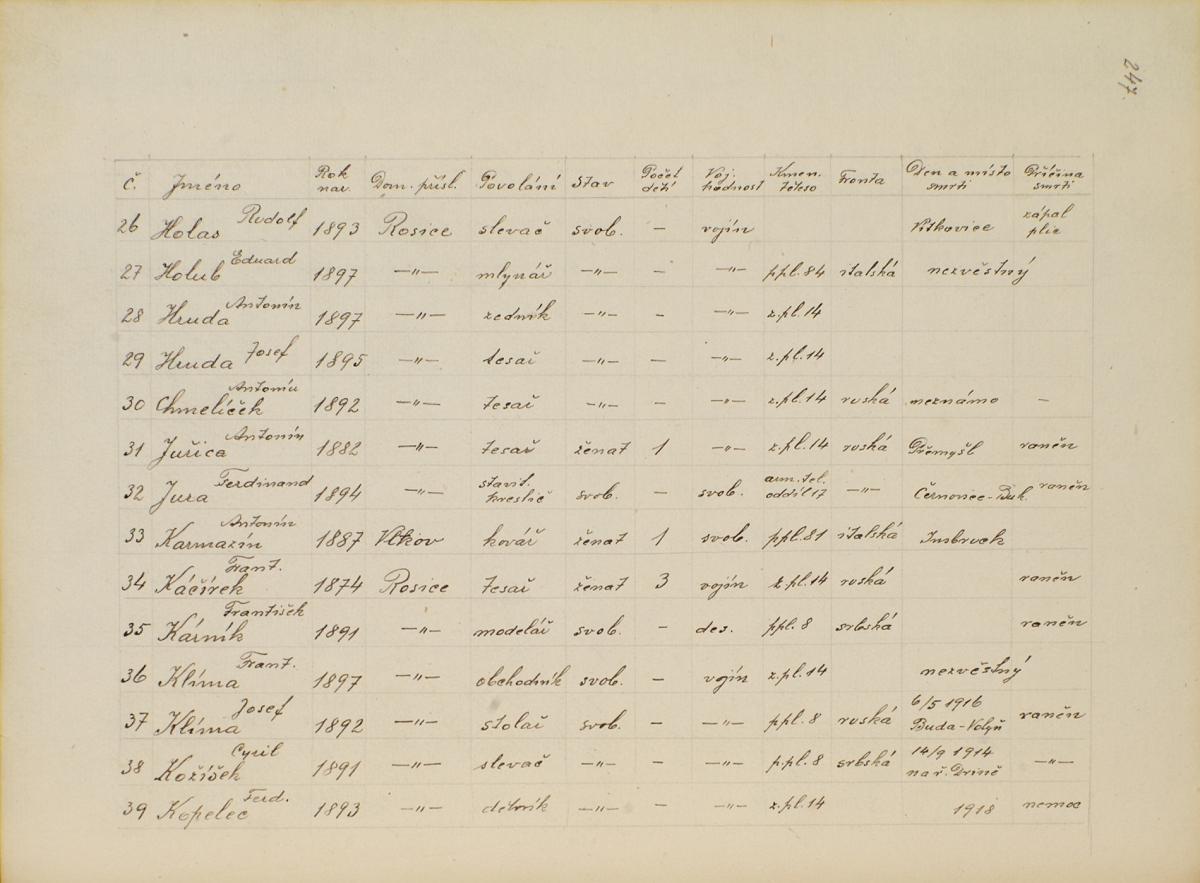 247.
č. Jméno Rok nar. Dom. přísl. Povolání Stav Počet dětí Voj. hodnost Kmen. těleso Fronta Den a místo smrti Příčina smrti
26 Holas Rudolf 1893 Rosice slevač svob. – vojín Vítkovice zápal plic
27 Holub Eduard 1897 —"— mlynář —"— – —"— p.pl. 84 italská nezvěstný
28 Hruda Antonín 1897 —"— zedník —"— – —"— z.pl. 14
29 Hruda Josef 1895 —"— tesař —"— – —"— z.pl. 14
30 Chmelíček Antonín 1892 —"— tesař —"— – —"— z.pl. 14 ruská neznámo –
31 Juřica Antonín 1882 —"— tesař ženat 1 —"— z.pl. 14 ruská Přemyšl raněn
32 Jura Ferdinand 1894 —"— stavit. kreslič svob. – svob. arm. tel. oddíl 17 —"— Černovec-Buk. raněn
33 Karmazín Antonín 1887 Vlkov kovář ženat 1 svob. p.pl. 81 italská Insbruck
34 Káčírek Frant. 1874 Rosice tesař ženat 3 vojín z.pl. 14 ruská raněn
35 Kárník František 1891 —"— modelář svob. – des. p.pl. 8 srbská raněn
36 Klíma Frant. 1897 —"— obchodník svob. – vojín z.pl. 14 nezvěstný
37 Klíma Josef 1892 —"— stolař svob. – —"— p.pl. 8 ruská 6/5 1916 Buda-Volyň raněn
38 Kožíšek Cyril 1891 —"— slevač —"— – —"— p.pl. 8 srbská 14/9 1914 na ř. Drině —"—
39 Kopelec Ferd. 1893 —"— dělník —"— – —"— z.pl. 14 1918 nemoc